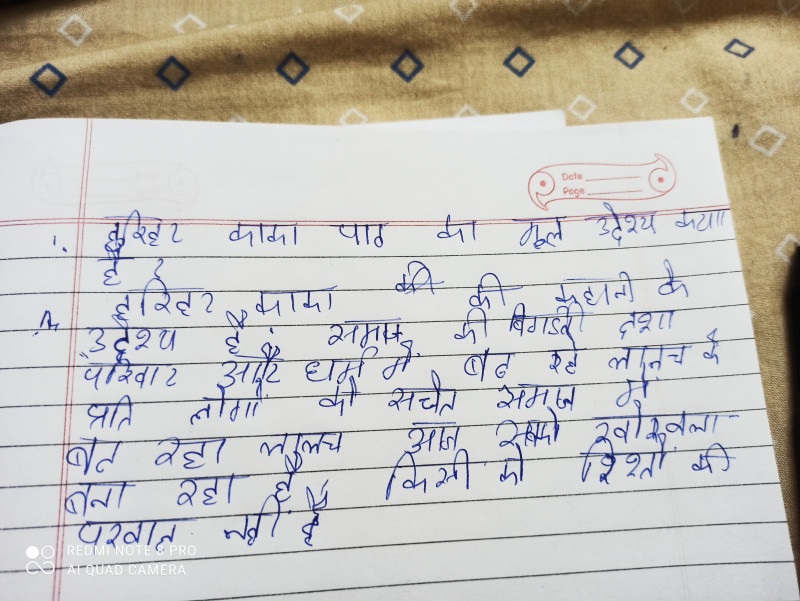 Date
Page
1. हरिहर काका पाठ का मूल उद्देश्य कया
है ?
A हरिहर काका की की कहानी के
उद्देश्य है : समाज की बिगडती दशा
परिवार और धर्म में बढ रहे लालच के
प्रति लोगों को सचेत समाज में
बन रहा लालच आज सबको खोखला
बना रहा है किसी को रिश्तो की
परवाह नही है
REDMI NOTE 8 PRO
AI QUAD CAMERA